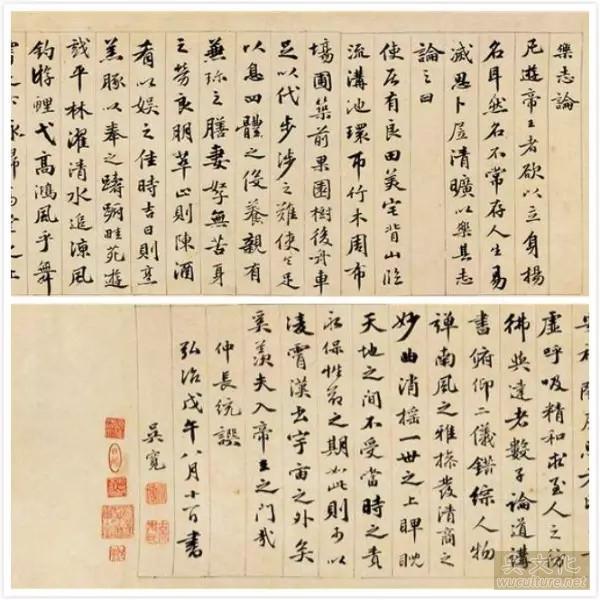 樂志論
凡遊帝王者欲以立身揚
名耳然名不常存人生易
滅思卜居清曠以樂其志
論之曰
使居有良田美宅背山臨
流溝池環帀竹木周布
場圃築前果園樹後舟車
足以代步涉之難使令足
以息四體之役養親有
兼珍之膳妻孥無苦身
之勞良朋萃止則陳酒
肴以娛之佳時吉日則烹
羔豚以奉之躊躇畦苑遊
戲平林濯清水追涼風
釣游鯉弋高鴻風乎舞
虛呼吸精和求至人之彷
彿與達者數子論道講
書俯仰二儀錯綜人物
彈南風之雅操發清商之
妙曲消搖一世之上睥睨
天地之間不受當時之責
永保性命之期如此則可以
凌霄漢出宇宙之外矣
奚羨夫入帝王之門哉
仲長統譔
弘治戊午八月十書
吳寬
吴文化
www.wuculture.net